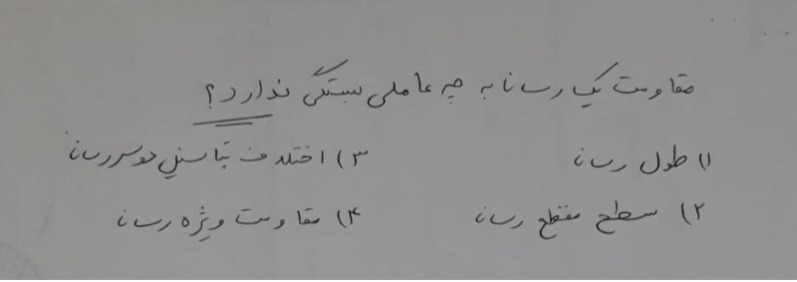 مقاومت یک رسانا به چه عاملی بستگی ندارد؟
۱) طول رسانا ۳) اختلاف پتانسیل دوسر رسانا
۲) سطح مقطع رسانا ۴) مقاومت ویژه رسانا